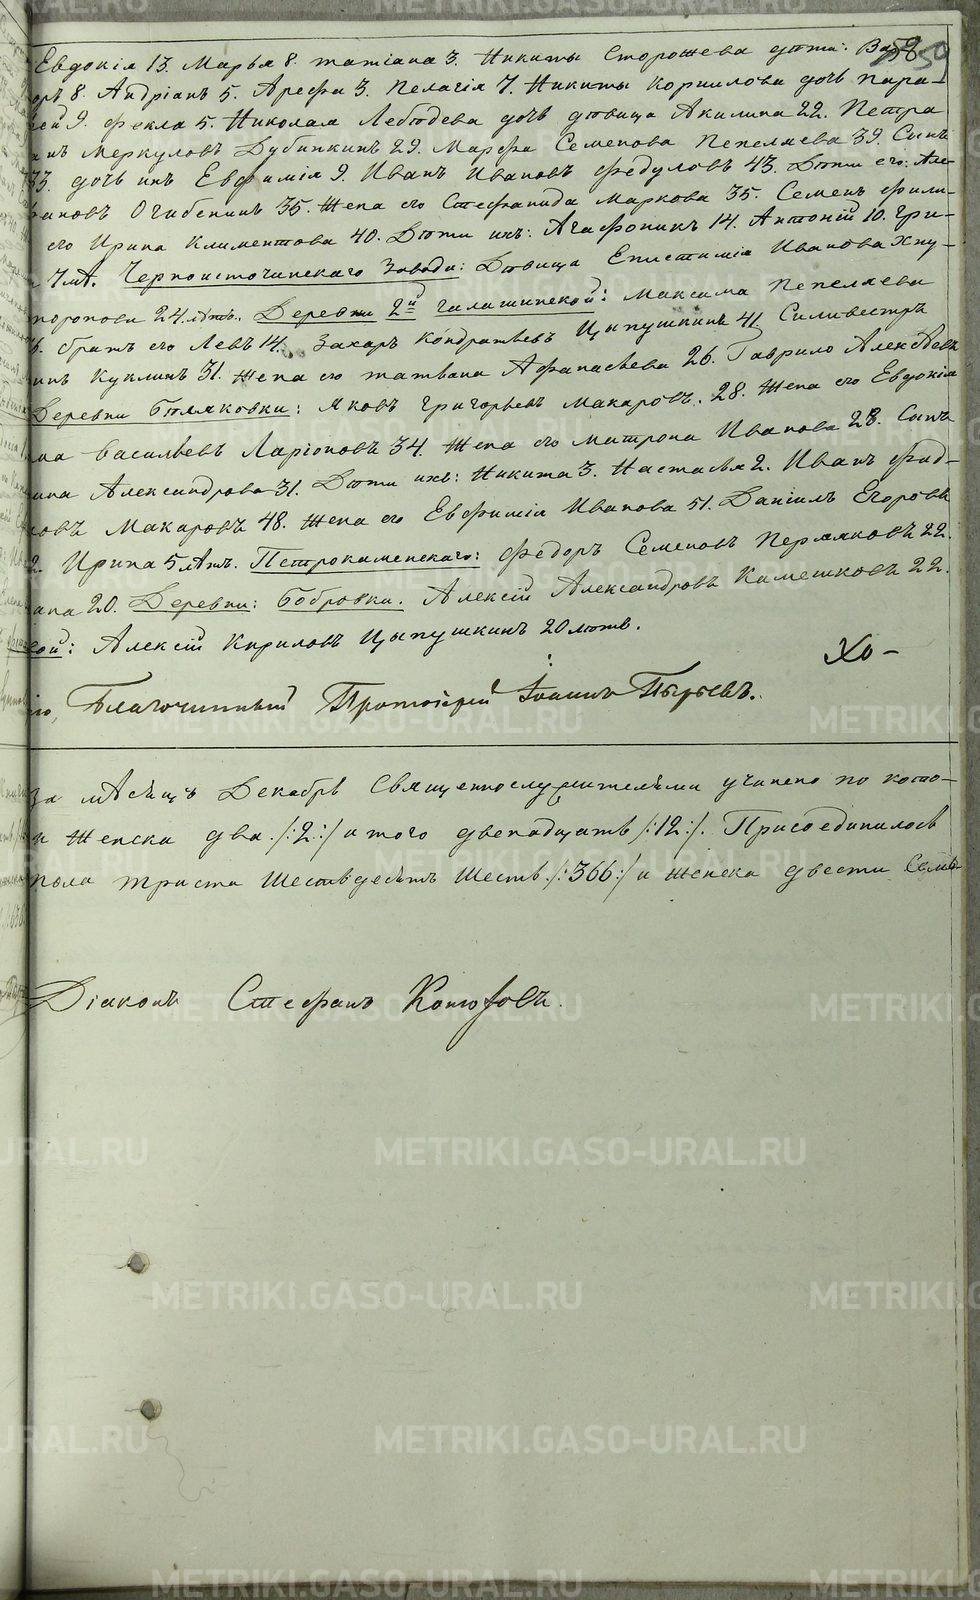 Евдокія 13. Марья 8. Татіана 3. Никиты Сторожева дѣти: Ва-
оръ 8. Андріанъ 5. Арефа 3. Пелагія 7. Никиты Корнилова дочь Пара-
ей 9. Фекла 5. Николая Лебедева дочь дѣвица Акилина 22. Петра
анъ Меркуловъ Дубинкинъ 29. Марфа Семенова Пепелаева 39. Сынъ
33. дочь ихъ Евфимія 9. Иванъ Ивановъ Федуловъ 43. Дѣти его: Але-
фановъ Огибенинъ 35. Жена его Стефанида Маркова 35. Семенъ Фили-
его Ирина Климентова 40. Дѣти ихъ: Агафоникъ 14. Антоній 10. Гри-
7 лѣ. Черноисточинскаго Завода: Дѣвица Епистимія Иванова Хну-
норонова 24. лѣтъ. Деревни 2й Галашинской: Максима Пепелаева
6. братъ его Левъ 14. Захаръ Кондратьевъ Цыпушкинъ 41 Силивестръ
инъ Куклинъ 31. Жена его Татьяна Афанасьева 26. Гаврило Алексѣевъ
Деревни Бѣляковки: Яковъ Григорьевъ Макаровъ. 28. Жена его Евдокія
на Васильевъ Ларіоновъ 34. Жена его Матрона Иванова 28. Сынъ
ина Александрова 31. Дѣти ихъ: Никита 3. Настасья 2. Иванъ Фад-
ковъ Макаровъ 48. Жена его Евфимія Иванова 51. Даніилъ Егоровъ
2. Ирина 5 лѣтъ. Петрокаменскаго: Федоръ Семеновъ Пермяковъ 22.
ана 20. Деревни: Бобровки. Алексій Александровъ Камешковъ 22.
ой: Алексій Кириловъ Цыпушкинъ 20 лѣтъ.
Хо-
го, Благочинный Протоіерей Іоаннъ Пырьевъ.
За мѣсяцъ Декабрь Священнослужителями учинено по кото-
и женска два /:2:/ итого двенадцать /:12:/. Присоединилось
пола триста шестьдесятъ шесть /:366:/ и женска двести семь-
Діаконъ Стефанъ Конюховъ.
METRIKI.GASO-URAL.RU